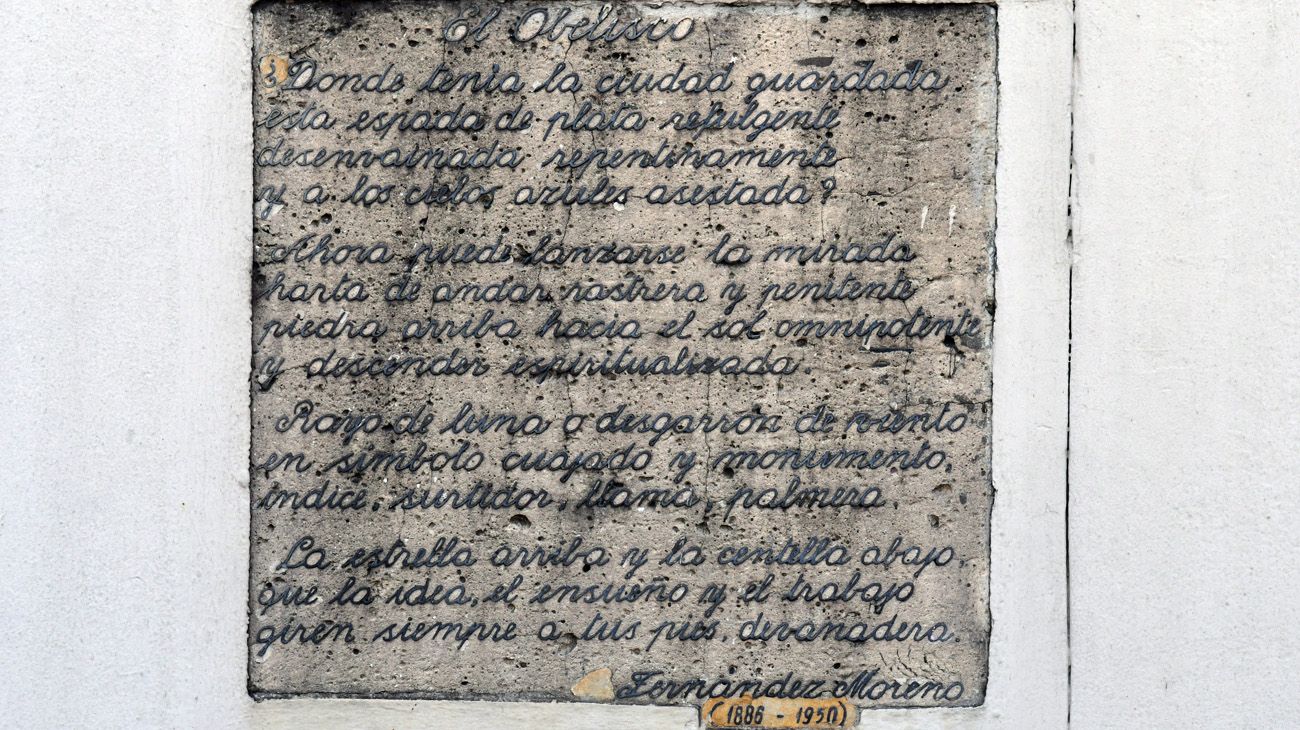 El Obelisco
¿Donde tenia la ciudad guardada
esta espada de plata refulgente
desenvainada repentinamente
y a los cielos azules asestada?
Ahora puede lanzarse la mirada
harta de andar rastrera y penitente
piedra arriba hacia el sol omnipotente
y descender espiritualizada.
Rayo de luna o desgarrón de viento
en símbolo cuajado y monumento,
índice, surtidor, llama, palmera.
La estrella arriba y la centella abajo,
que la idea, el ensueño y el trabajo
giren siempre a tus pies, devanadera.
Fernández Moreno
(1886 - 1950)